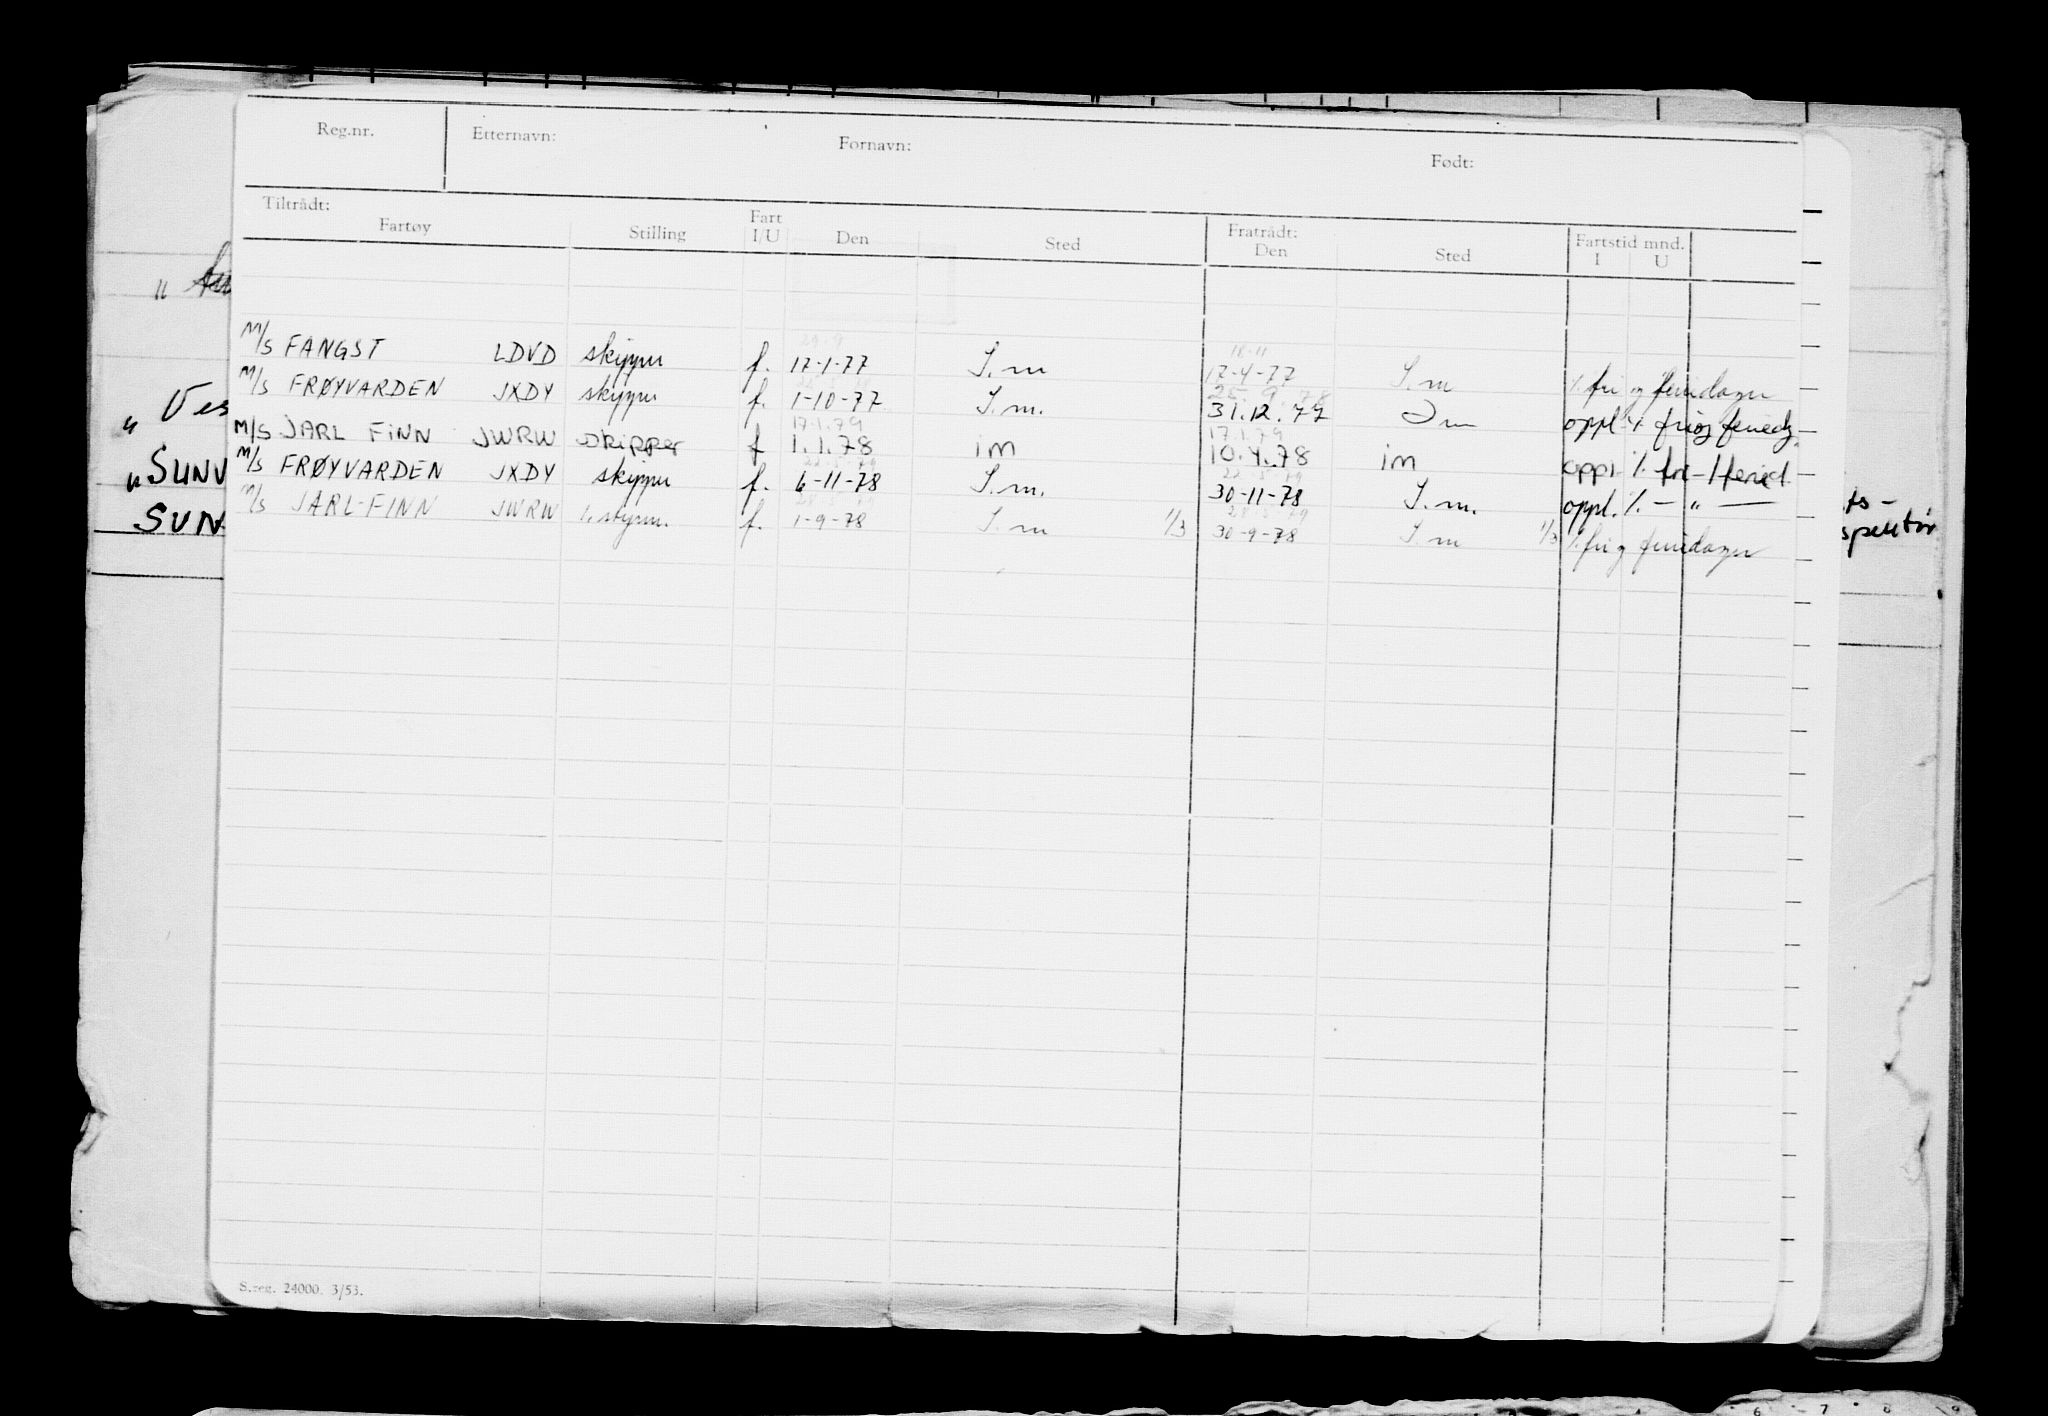 Reg.nr. Etternavn: Fornavn: Født:
Tiltrådt: Fratrådt:
Fartøy Stilling Fart I/U Den Sted Den Sted Fartstid mnd. I U
29.9 18.11
M/S FANGST LDVD skipper f. 17-1-77 I.m 17-4-77 I.m % fri og feriedager
25.9.78
M/S FRØYVARDEN JXDY skipper f. 1-10-77 I.m. 31.12.77 Im oppl. % fri og feriedg.
17.1.79 17.1.79
M/S JARL FINN JWRW skipper f 1.1.78 im 10.4.78 im oppl % fri - / feried.
M/S FRØYVARDEN JXDY skipper f. 6-11-78 I.m. 30-11-78 I.m. oppl. % — " —
M/S JARL-FINN JWRW 1. styrm. f. 1-9-78 I.m 1/3 30-9-78 I.m 1/3 % fri og feriedager
" Ves
" SUNV
SUN
ts-
spektør
S.reg. 24000. 3/53.
6 7 8 9